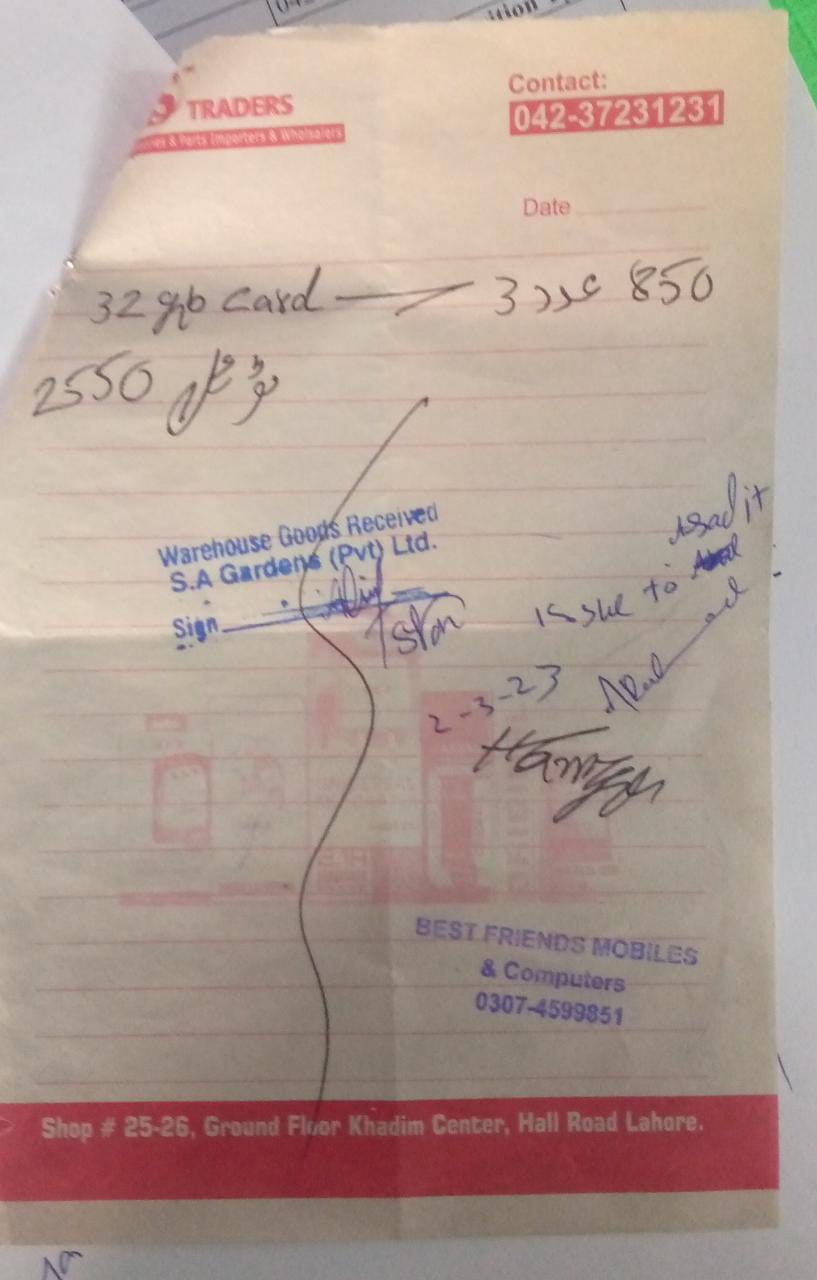 TRADERS
& Parts Importers & Wholsalers
Contact:
042-37231231
Date
32 gb Card 3 عدد 850
2550
Warehouse Goods Received
S.A Gardens (Pvt) Ltd.
Sign
Issue to
Asad it
2-3-23
Hamza
BEST FRIENDS MOBILES
& Computers
0307-4599851
Shop # 25-26, Ground Floor Khadim Center, Hall Road Lahore.